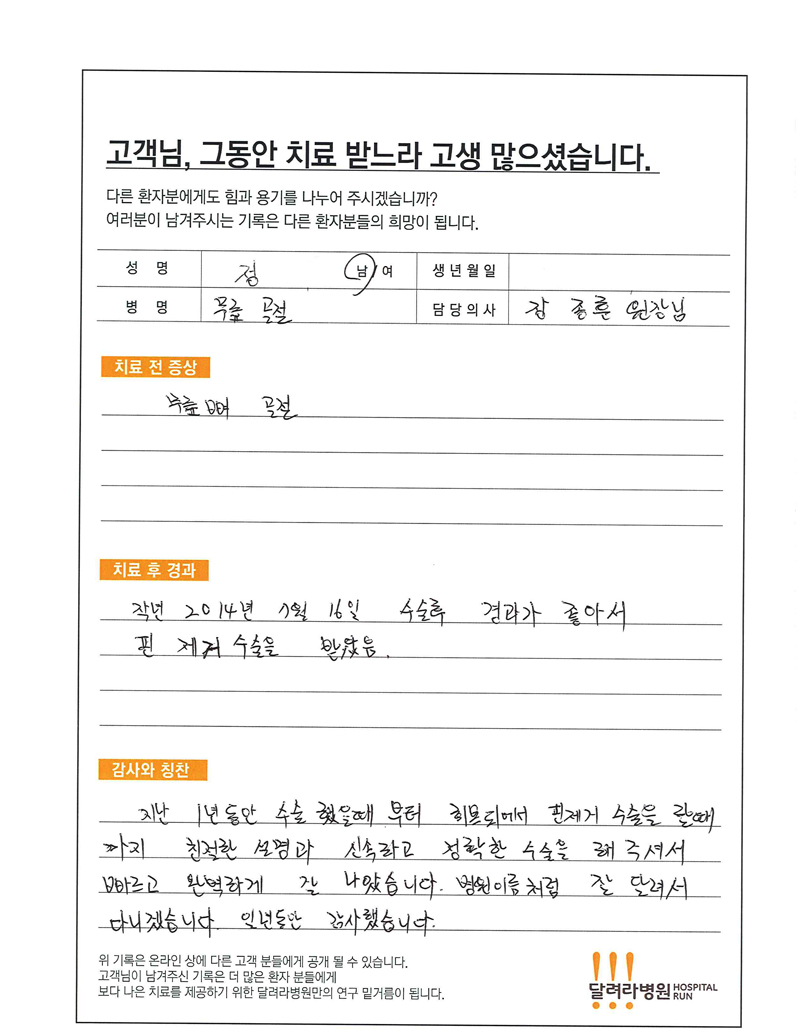 고객님, 그동안 치료 받느라 고생 많으셨습니다.
다른 환자분에게도 힘과 용기를 나누어 주시겠습니까?
여러분이 남겨주시는 기록은 다른 환자분들의 희망이 됩니다.
성 명 정 남/여 생년월일
병 명 무릎 골절 담당의사 장종훈 원장님
치료 전 증상
무릎뼈 골절
치료 후 경과
작년 2014년 7월 16일 수술후 경과가 좋아서
핀 제거 수술을 받았음.
감사와 칭찬
지난 1년동안 수술 했을때 부터 회복되에서 핀제거 수술을 할때
까지 친절한 설명과 신속하고 정확한 수술을 해 주셔서
빠르고 완벽하게 잘 나았습니다. 병원이름처럼 잘 달려서
다니겠습니다. 일년동안 감사했습니다.
위 기록은 온라인 상에 다른 고객 분들에게 공개 될 수 있습니다.
고객님이 남겨주신 기록은 더 많은 환자 분들에게
보다 나은 치료를 제공하기 위한 달려라병원만의 연구 밑거름이 됩니다.
달려라병원 HOSPITAL RUN